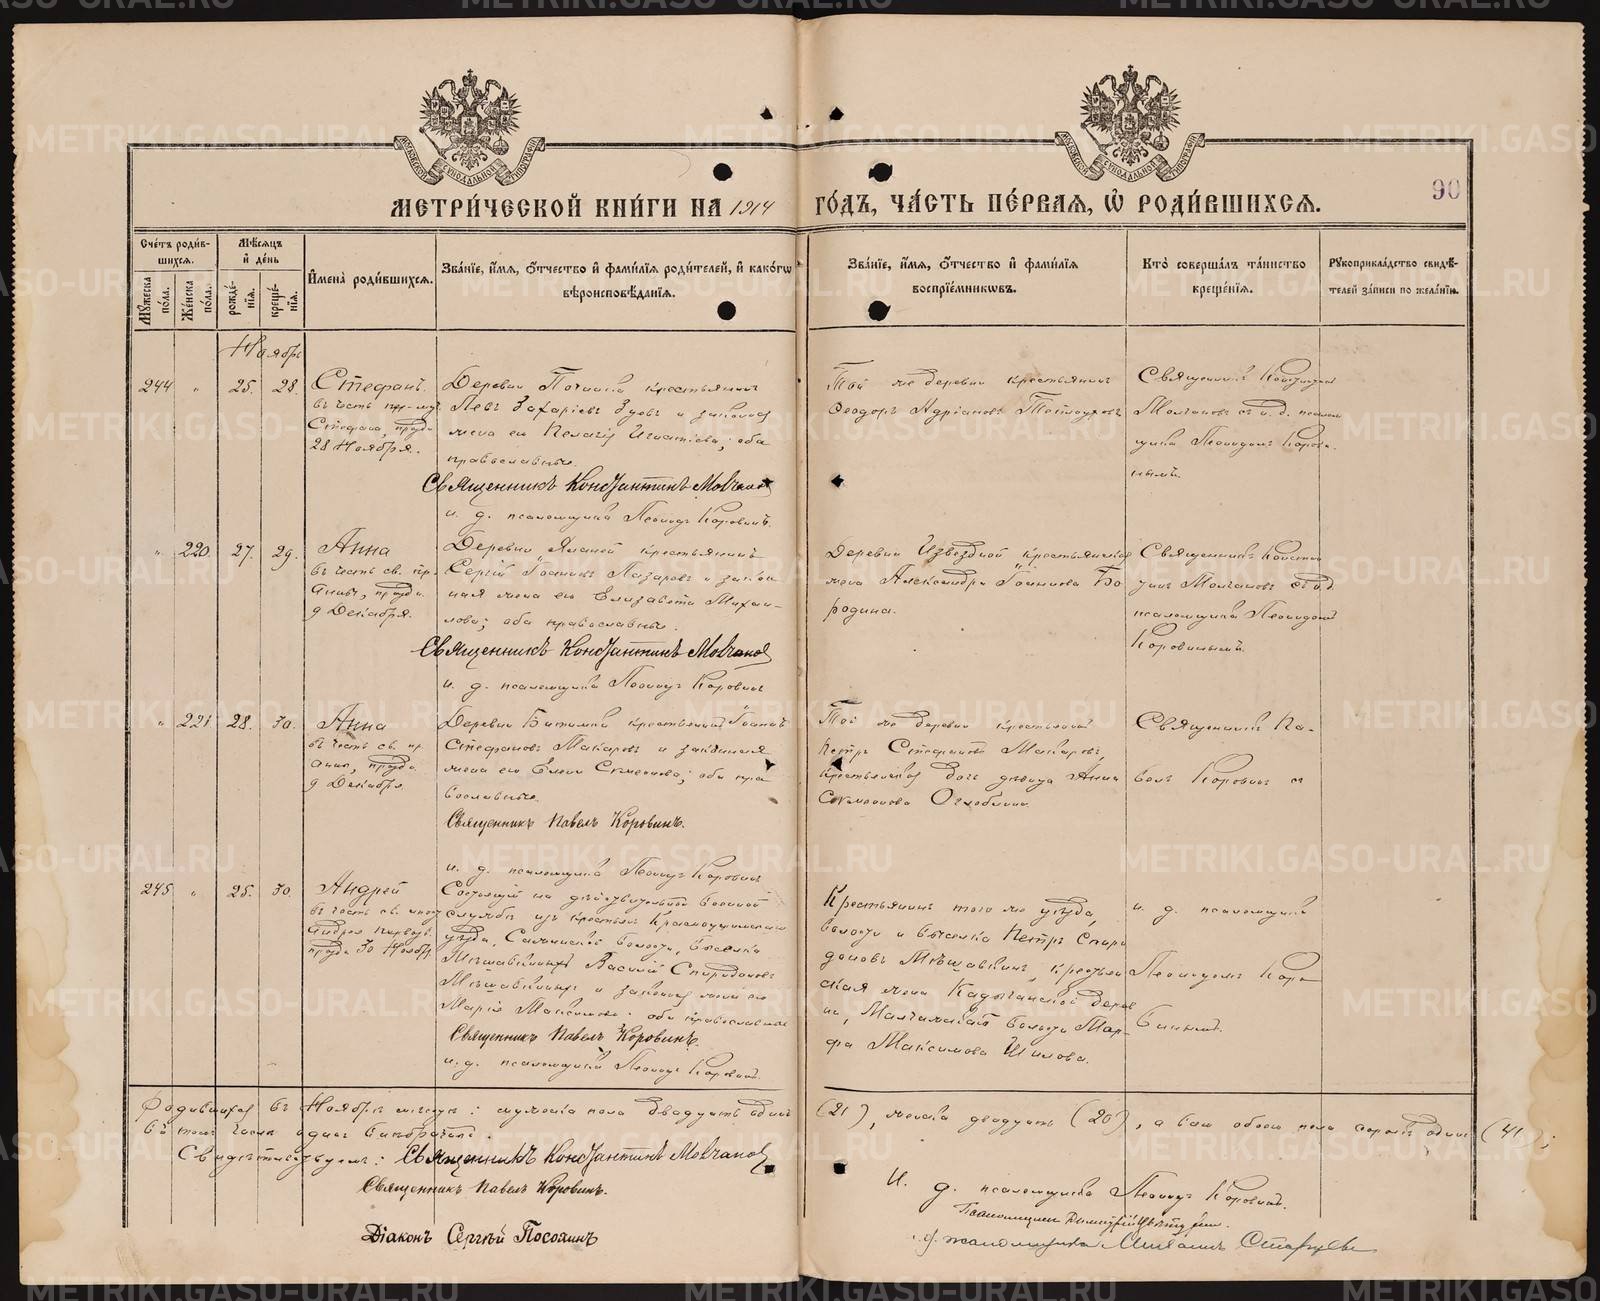 МОСКОВСКОЙ СѴНОДАЛЬНОЙ ТИПОГРАФІИ
МОСКОВСКОЙ СѴНОДАЛЬНОЙ ТИПОГРАФІИ
90
МЕТРИ́ЧЕСКОЙ КНИ́ГИ НА 1914 ГО́ДЪ, ЧА́СТЬ ПЕ́РВАЯ, Ѡ РОДИ́ВШИХСЯ.
Сче́тъ роди́вшихся.
Мꙋ́жеска по́ла.
Же́нска по́ла.
Мѣ́сяцъ и де́нь
рожде́нія.
креще́нія.
Имена̀ роди́вшихся.
Зва́ніе, и́мя, о́тчество и фами́лія роди́телей, и како́гѡ вѣроисповѣ́данія.
Зва́ніе, и́мя, о́тчество и фами́лія воспріе́мникѡвъ.
Кто̀ соверша́лъ та́инство креще́нія.
Рꙋкоприкла́дство свидѣ́телей за́писи по жела́нію.
Ноябрь
244 " 25. 28. Стефанъ.
въ честь
Стефана, празд.
28 Ноября.
Деревни Починка крестьянинъ
Левъ Захаріевъ Зуевъ и законная
жена его Пелагія Игнатіева; оба
православные.
Священникъ Константинъ Молчановъ
и. д. псаломщика Леонидъ Коровинъ.
Той же деревни крестьянинъ
Ѳеодоръ Адріановъ
Священникъ Константинъ
Молчановъ съ и. д. псалом
щика Леонидомъ Корови
нымъ.
" 220. 27. 29. Анна
въ честь св. пр.
Анны, празд.
9 Декабря.
Деревни крестьянинъ
Сергій Іоанновъ Лазаревъ и закон
ная жена его Елизавета Михаи
лова; оба православные.
Священникъ Константинъ Молчановъ
и. д. псаломщика Леонидъ Коровинъ
Деревни Извездной крестьянская
жена Александра Іоаннова Бо
родина.
Священникъ Констан
тинъ Молчановъ съ и.д.
псаломщика Леонидомъ
Коровинымъ.
" 221. 28. 30. Анна
въ честь св. пр.
Анны, празд.
9 Декабря.
Деревни Битимки крестьянинъ Іоаннъ
Стефановъ Макаровъ и законная
жена его Елена Симеонова; оба пра
вославные.
Священникъ Павелъ Коровинъ.
и. д. псаломщика Леонидъ Коровинъ
Той же деревни крестьянинъ
Петръ Стефановъ Макаровъ,
крестьянская дочь девица Анна
Симеонова Оглоблина.
Священникъ Па-
велъ Коровинъ съ
245 " 25. 30. Андрей
въ честь св. апост.
Андрея Первозв.
празд. 30 Ноября.
Состоящій на дѣйствительной военной
службѣ изъ крестьянъ Красноуфимскаго
уѣзда, волости, выселка
Василій Спиридоновъ
и законная жена его
Марія Максимова; оба православные
Священникъ Павелъ Коровинъ.
и. д. псаломщика Леонидъ Коровинъ.
Крестьянинъ того же уѣзда,
волости и выселка Петръ Спири
доновъ Мѣшавкинъ, крестьян
ская жена дерев
ни, волости Мар-
фа Максимова Шилова.
и. д. псаломщика
Леонидомъ Коро
винымъ.
Родившихся въ Ноябрѣ мѣсяцѣ: мужеска пола двадцать одинъ (21), женска двадцать (20), а всего обоего пола сорокъ одинъ (41);
въ томъ числѣ одинъ
Свидѣтельствуемъ: Священникъ Константинъ Молчановъ
Священникъ Павелъ Коровинъ.
Діаконъ Сергѣй
И. д. псаломщика Леонидъ Коровинъ.
Псаломщикъ Димитрій
и. д. псаломщика Михаилъ Старцевъ
METRIKI.GASO-URAL.RU